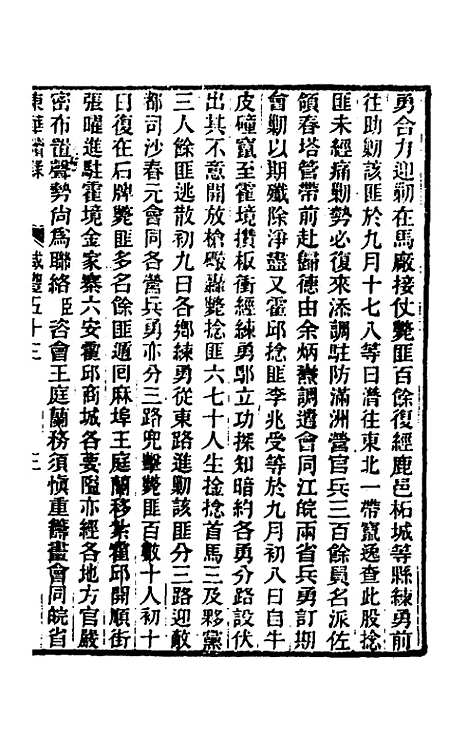 勇合力迎剿在馬廠接仗斃匪百餘復經鹿邑柘城等縣練勇前
往助剿該匪於九月十七八等日潛往東北一帶竄逸查此股捻
匪未經痛剿勢必復來添調駐防滿洲營官兵三百餘員名派佐
領春塔管帶前赴歸德由余炳燾調遣會同江皖兩省兵勇訂期
會剿以期殲除淨盡又霍邱捻匪李兆受等於九月初八日自牛
皮礄竄至霍境攢板衝經練勇鄢立功探知暗約各勇分路設伏
出其不意開放槍礮轟斃捻匪六七十人生擒捻首馬三及夥黨
三人餘匪逃散初九日各鄉練勇從東路進剿該匪分三路迎敵
都司沙春元會同各營兵勇亦分三路兜擊斃匪百數十人初十
日復在石牌斃匪多名餘匪遁回麻埠王庭蘭移紮霍邱開順街
張曜進駐霍境金家寨六安霍邱商城各要隘亦經各地方官嚴
密布置聲勢尚為聯絡臣咨會王庭蘭務須慎重籌畫會同皖省
東華續錄 咸豐五十三 三